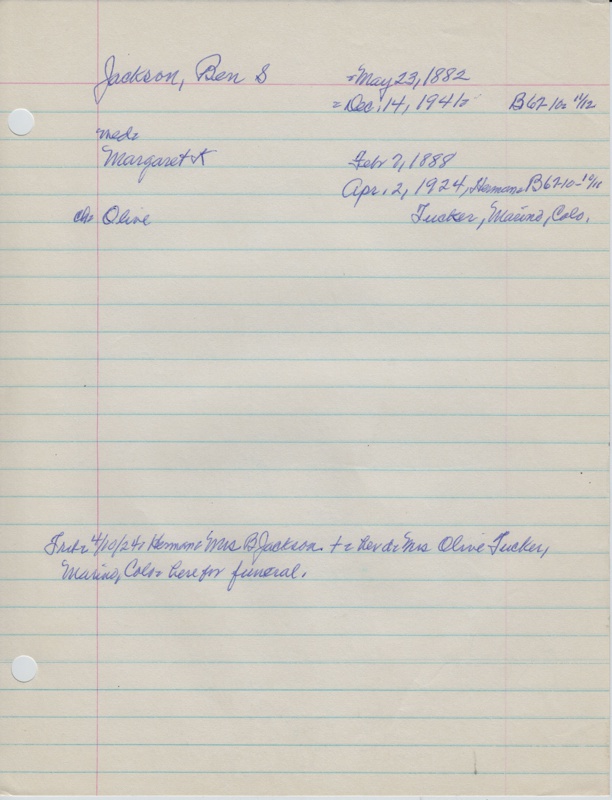 Jackson, Ben S = May 23, 1882
= Dec. 14, 1941= B62-10= 11/12
med=
Margaret K Feb 7, 1888
Apr. 2, 1924, Hermano B62-10-10/11
ch= Olive Tucker, Marino, Colo.
Trib= 4/10/24= Hermano= Mrs B Jackson += her d= Mrs Olive Tucker,
Marino, Colo= here for funeral.